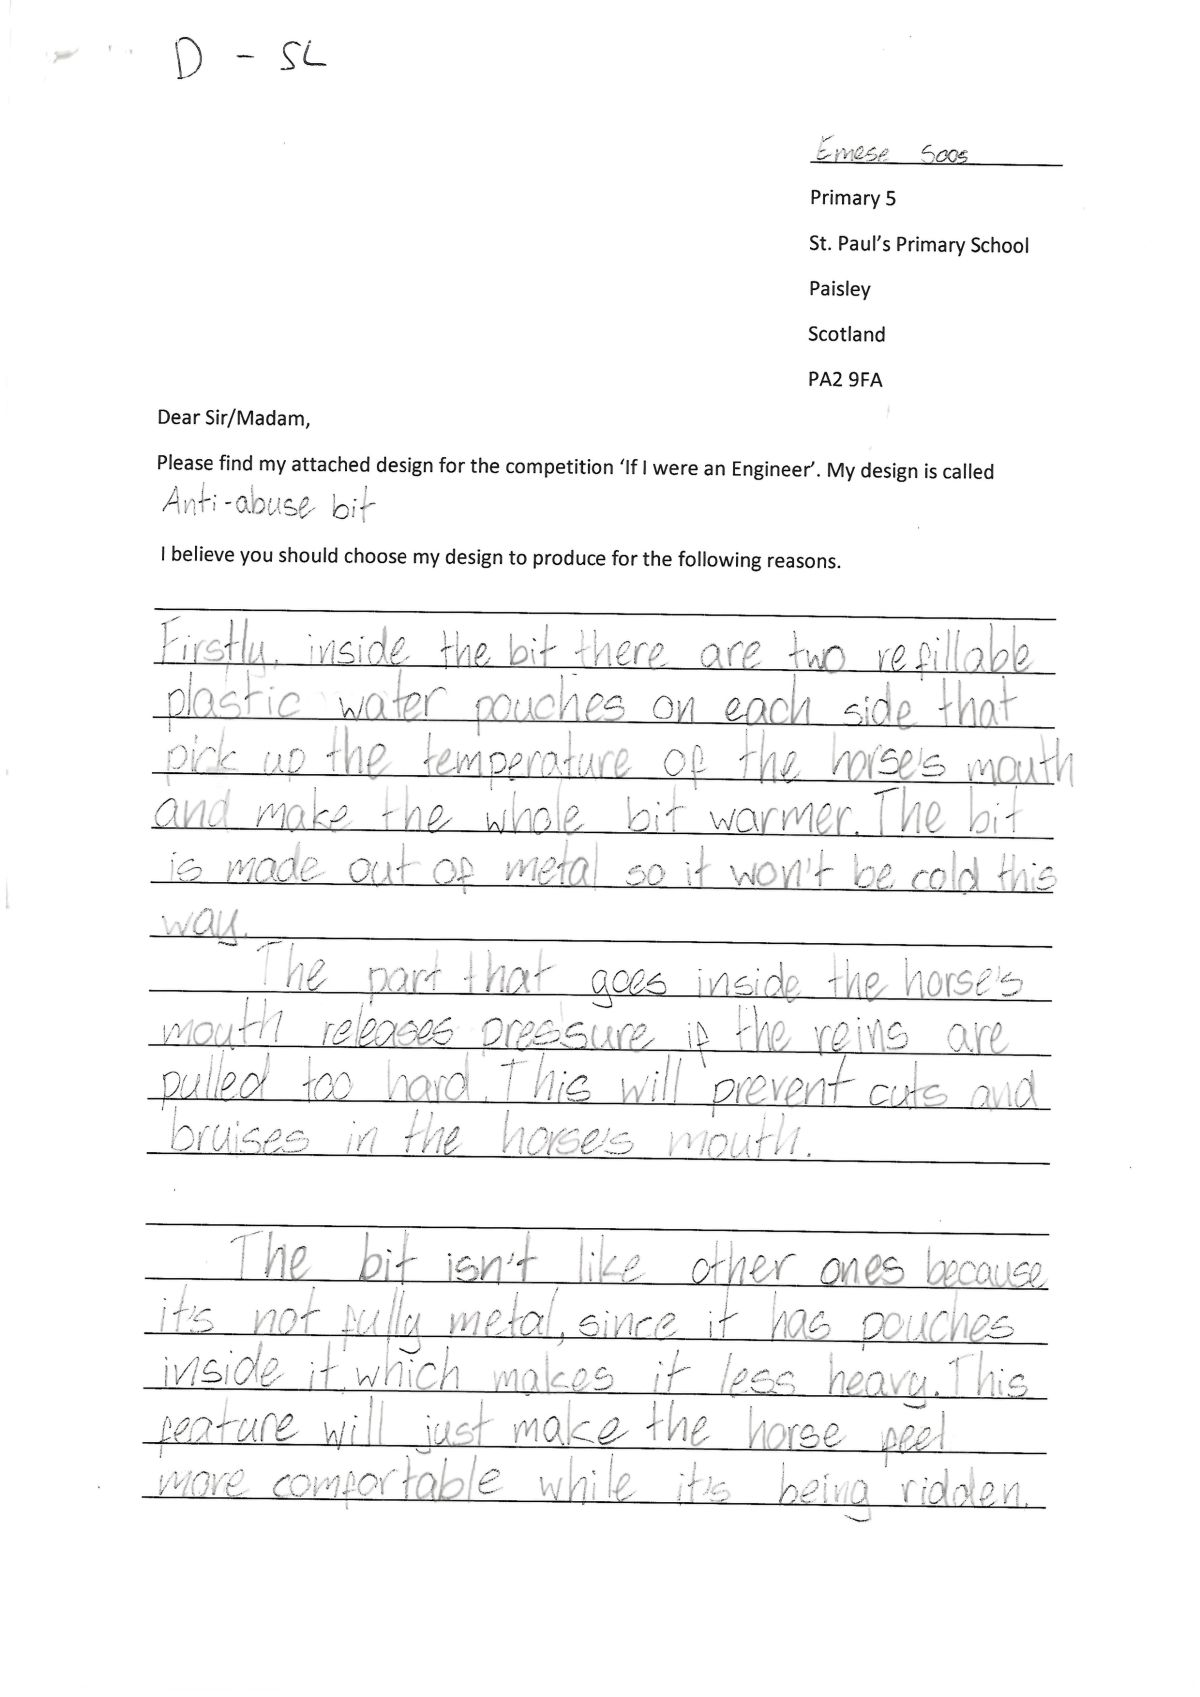 D - SL
Emese Soos
Primary 5
St. Paul's Primary School
Paisley
Scotland
PA2 9FA
Dear Sir/Madam,
Please find my attached design for the competition 'If I were an Engineer'. My design is called
Anti-abuse bit
I believe you should choose my design to produce for the following reasons.
Firstly, inside the bit there are two refillable
plastic water pouches on each side that
pick up the temperature of the horse's mouth
and make the whole bit warmer. The bit
is made out of metal so it won't be cold this
way.
The part that goes inside the horse's
mouth releases pressure if the reins are
pulled too hard. This will prevent cuts and
bruises in the horse's mouth.
The bit isn't like other ones because
it's not fully metal, since it has pouches
inside it which makes it less heavy. This
feature will just make the horse feel
more comfortable while it's being ridden.